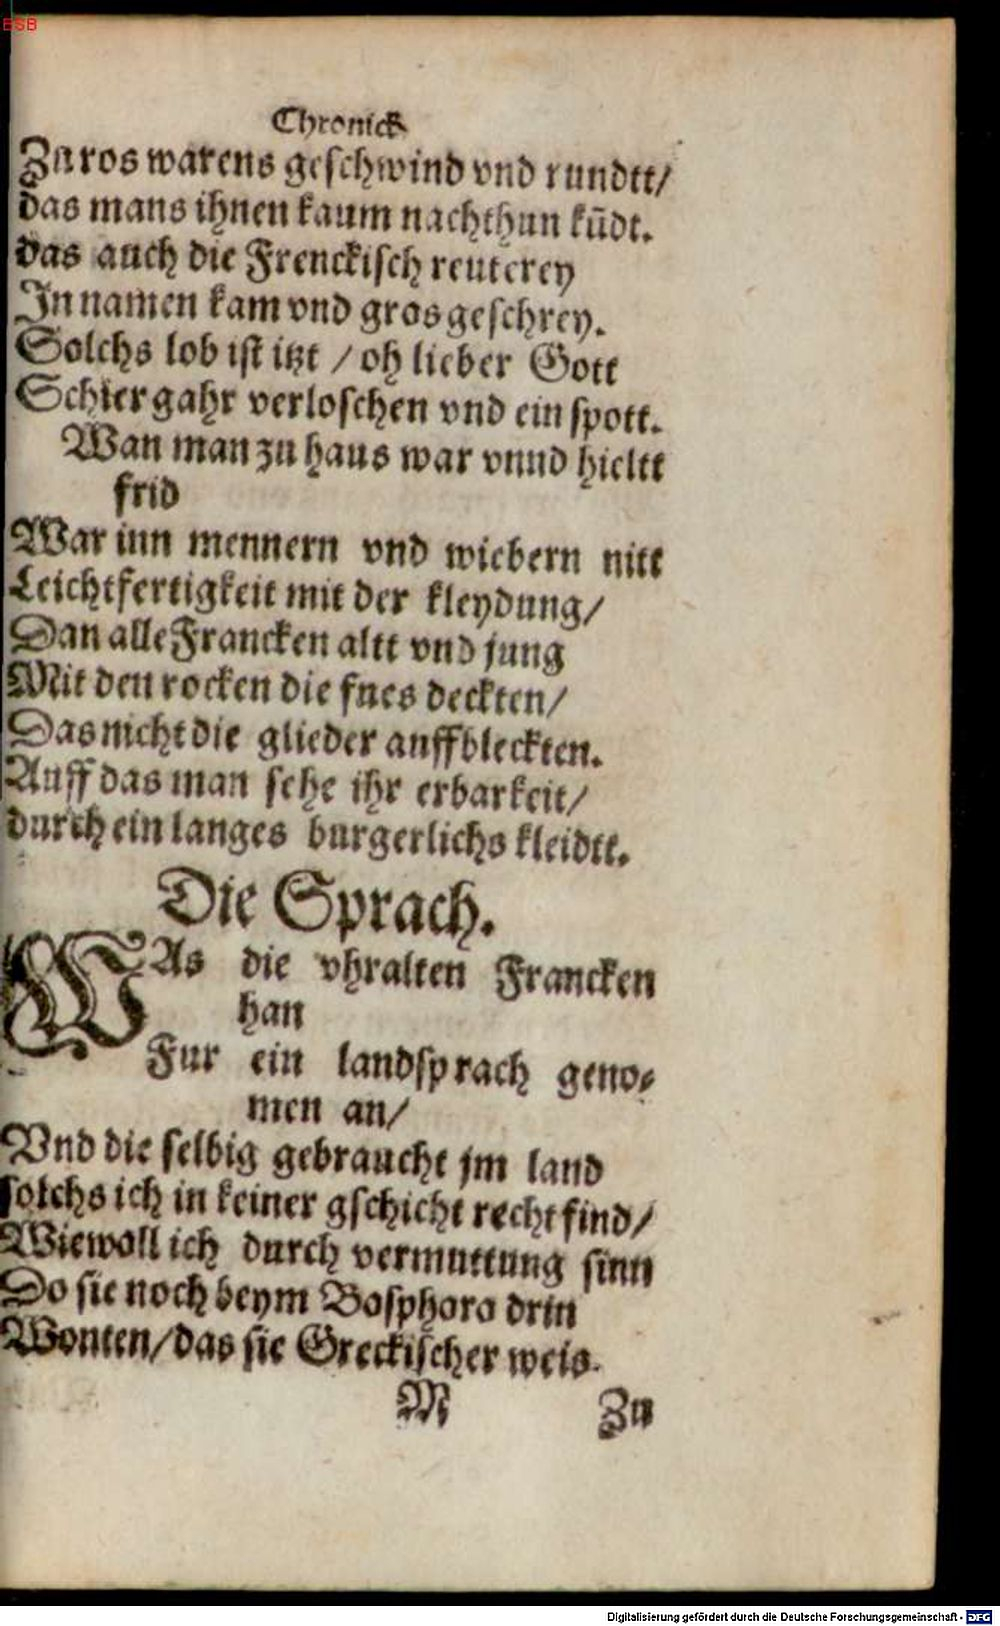 BSB
Chronick
Zu ros warens geschwind vnd rundtt/
das mans ihnen kaum nachthun kūdt.
das auch die Frenckisch reuterey
In namen kam vnd gros geschrey.
Solchs lob ist itzt / oh lieber Gott
Schier gahr verloschen vnd ein spott.
Wan man zu haus war vnnd hieltt
frid
War inn mennern vnd wiebern nitt
Leichtfertigkeit mit der kleydung/
Dan alle Francken altt vnd jung
Mit den rocken die fues deckten/
Das nicht die glieder auffbleckten.
Auff das man sehe ihr erbarkeit/
durch ein langes burgerlichs kleidtt.
Die Sprach.
WAs die vhralten Francken
han
Fur ein landsprach geno-
men an/
Vnd die selbig gebraucht jm land
solchs ich in keiner gschicht recht find/
Wiewoll ich durch vermuttung sinn
Do sie noch beym Bosphoro drin
Wonten/das sie Greckischer weis.
M Zu
Digitalisierung gefördert durch die Deutsche Forschungsgemeinschaft - DFG